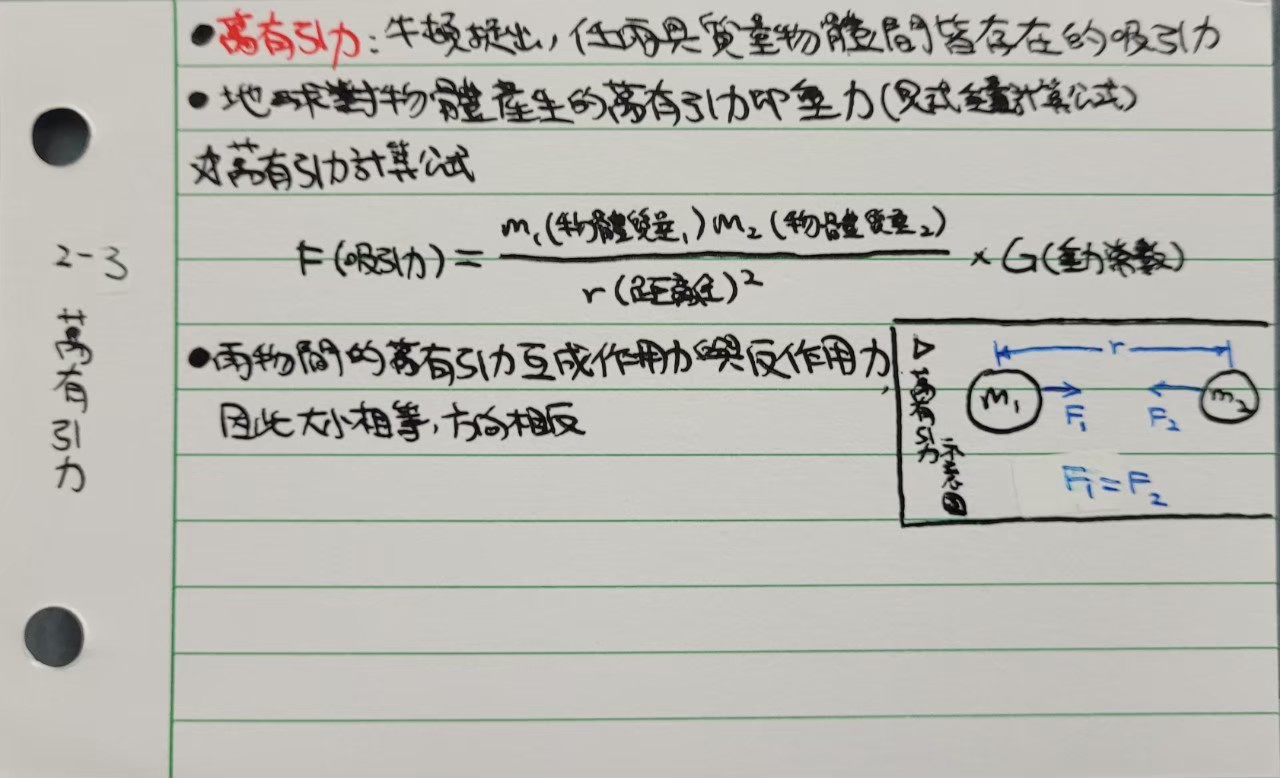 ●萬有引力：牛頓提出，任兩具質量物體間皆存在的吸引力
●地球對物體產生的萬有引力即重力(見式重計算公式)
☆萬有引力計算公式
F(吸引力)= m₁(物體質量₁)m₂(物體質量₂) / r(距離)² ×G(重力常數)
●兩物間的萬有引力互成作用力與反作用力，
因此大小相等，方向相反
2-3
萬有引力
▷萬有引力示意圖
r
m₁
F₁
F₂
m₂
F₁=F₂